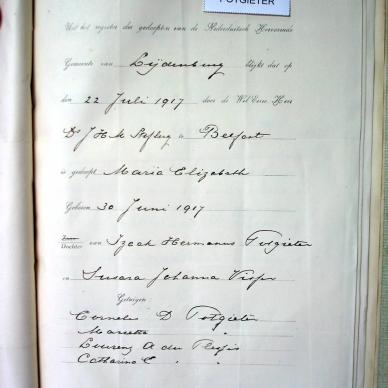 POTGIETER
Uit het register der gedoopten van de Nederduitsch Hervormde
Gemeente van Lijdenburg blijkt dat op
den 22 Juli 1917 door de Wel Eerw. Heer
Ds J H M te Belfast
is gedoopt Maria Elizabeth
Geboren 30 Juni 1917
Zoon
Dochter van Izaak Hermanus Potgieter
en Susara Johanna Visser
Getuigen
Cornelis D Potgieter
"
Lourens A du Plessis
Catharina C " "